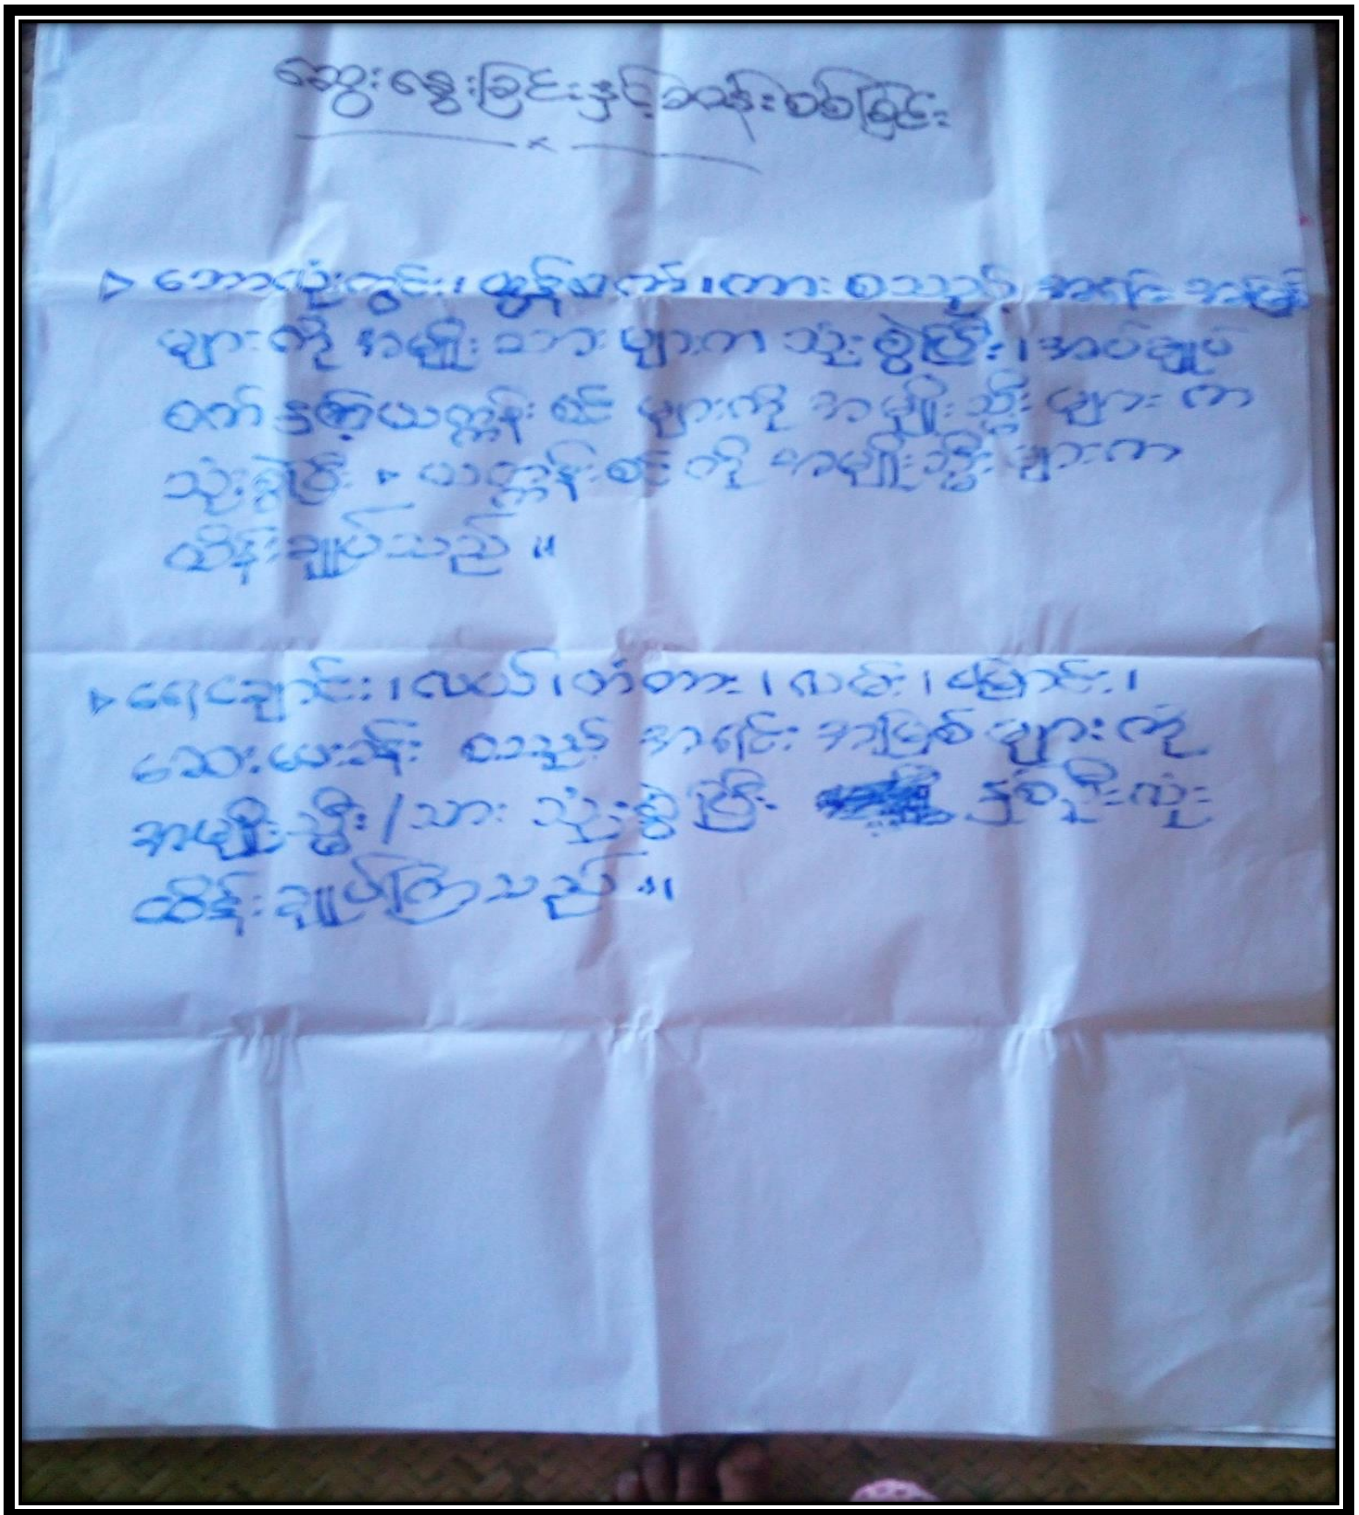 ဆွေးနွေးခြင်းနှင့်ဆန်းစစ်ခြင်း
ဘောလုံးကွင်း၊ ထွန်စက်၊ ကား စသည့် အရင်းအမြစ်
များကို အမျိုးသားများက သုံးစွဲပြီး၊ အပ်ချုပ်
စက်နှင့်ယက္ကန်းစင်များကို အမျိုးသ္မီးများက
သုံးစွဲပြီး ယက္ကန်းစင်ကို အမျိုးသ္မီးများက
ထိန်းချုပ်သည်။
ရေချောင်း၊ လယ်၊ တံတား၊ လမ်း၊ မြောင်း၊
ဆေးပေးခန်း စသည့် အရင်းအမြစ်များကို
အမျိုးသ္မီး/သား သုံးစွဲပြီး နှစ်ဦးလုံး
ထိန်းချုပ်ကြသည်။